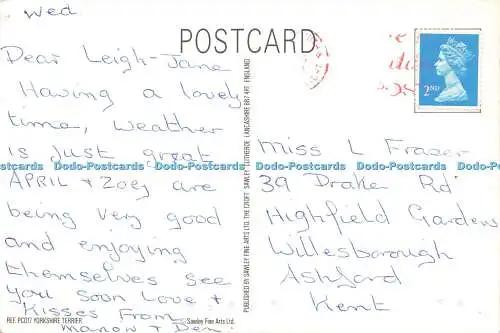 Wed
POSTCARD
2ND
Dear Leigh-Jane
Having a lovely
time, weather
is just great
APRIL + Zoey are
being very good
and enjoying
themselves see
you soon Love +
Kisses From
PUBLISHED BY SAWLEY FINE ARTS LTD. THE CROFT SAWLEY CLITHEROE LANCASHIRE BB7 4RT ENGLAND
Miss L Fraser
39 Drake Rd
Highfield Gardens
Willesborough
Ashford
Kent
REF. PC017 YORKSHIRE TERRIER
Sawley Fine Arts Ltd.
Dado-Postcards Dado-Postcards Dado-Postcards